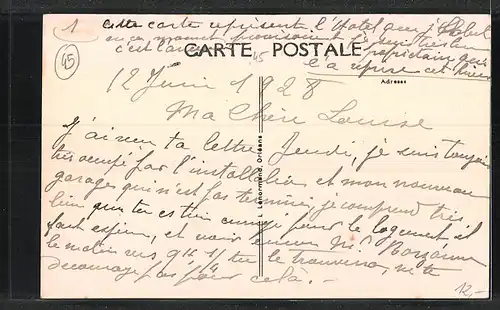 1 cette carte représente l'Hotel que j'habite
en ce moment provisoirement je suis très bien
c'est l'an propriétaire qui
l'a reprise cet hiver
45
45
CARTE POSTALE
Adresse
12 Juin 1928
Ma Chère Louise
J'ai reçu ta lettre Jeudi, je suis toujours
très occupé par l'installation et mon nouveau
garage qui n'est pas terminé, je comprend très
bien que tu es très ennuyé pour le logement, il
faut et voir encore Mr
le matin vers 9h 1/4 tu le trouveras, ne te
décourage pas pour celà. -
L. Lenormand, Orléans
12,-